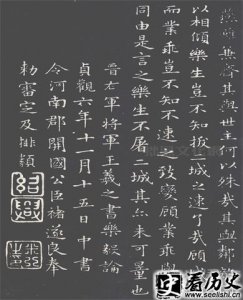 兼齊其與世主何以殊哉其與鄰
以相傾樂生豈不知拔二城之速了哉顧
而業乖豈不知不速之致變顧業乖與
同由是言之樂生不屠二城其亦未可量也
晉右軍將軍王羲之書樂毅論
貞觀六年十一月十五日中書
令河南郡開國公臣褚遂良奉
勅審定及排類
紹興
看历史
www.seelishi.cn